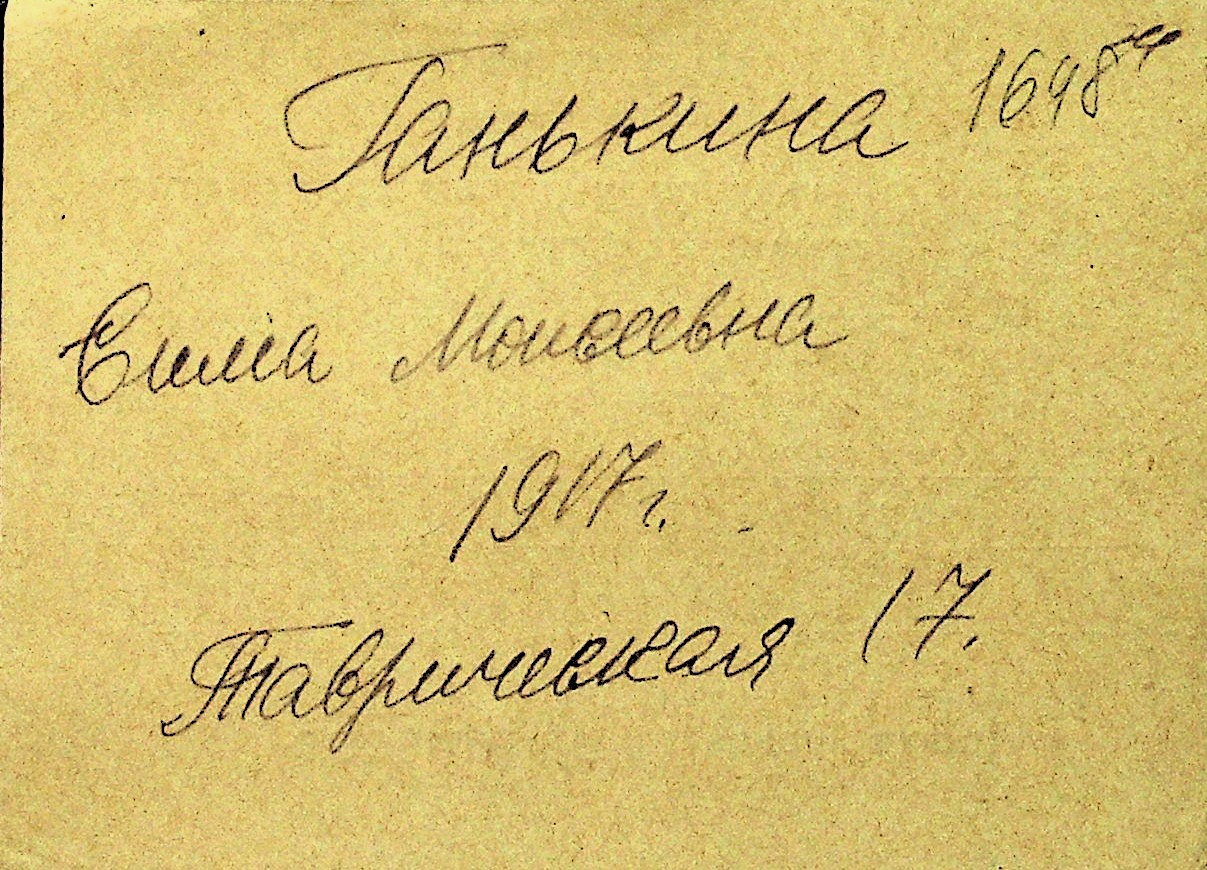 Ганькина 1648
Сима Моисеевна
1917 г.
Таврическая 17.